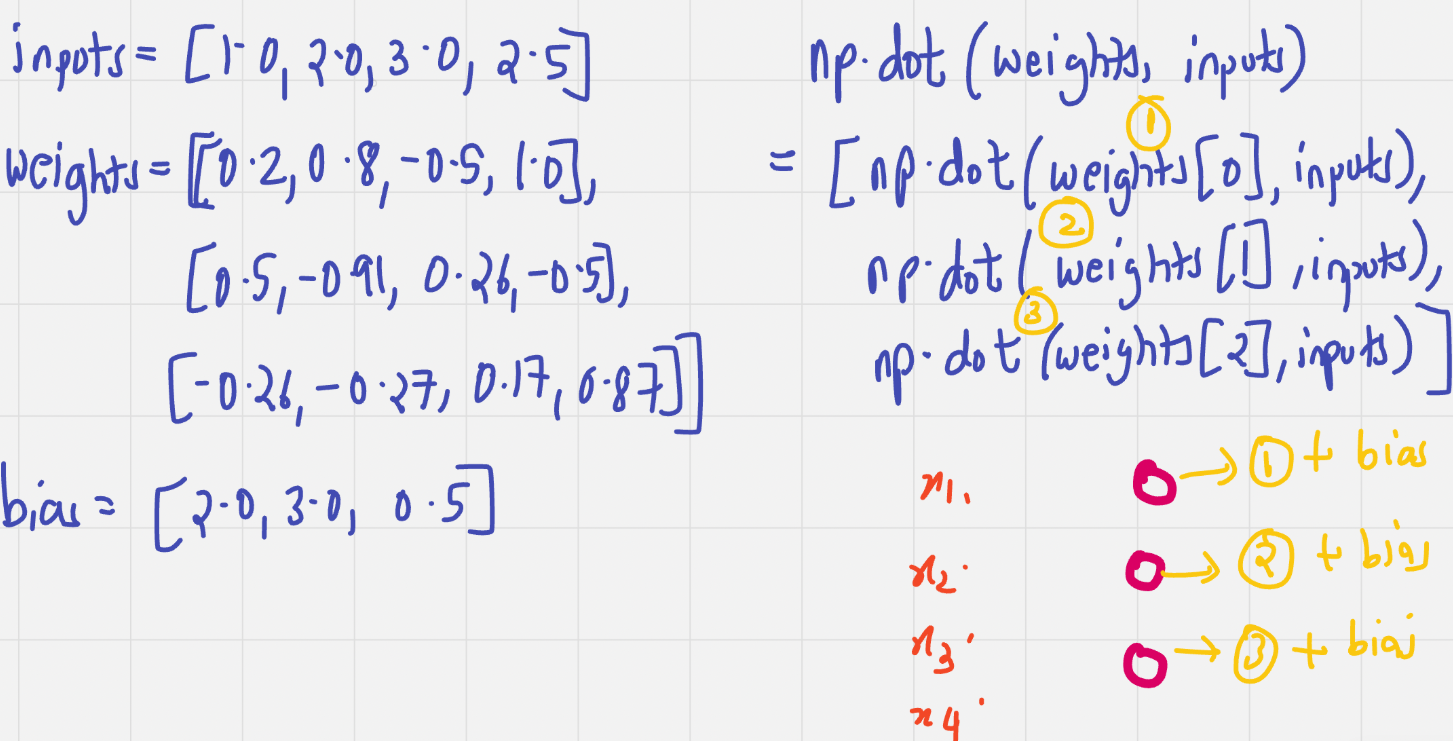 inputs = [1.0, 2.0, 3.0, 2.5]
weights = [[0.2, 0.8, -0.5, 1.0],
[0.5, -0.91, 0.26, -0.5],
[-0.26, -0.27, 0.17, 0.87]]
bias = [2.0, 3.0, 0.5]
np.dot (weights, inputs)
①
= [np.dot (weights[0], inputs),
②
np.dot (weights [1], inputs),
③
np.dot (weights[2], inputs)]
x1. → ① + bias
x2. → ② + bias
x3. → ③ + bias
x4.